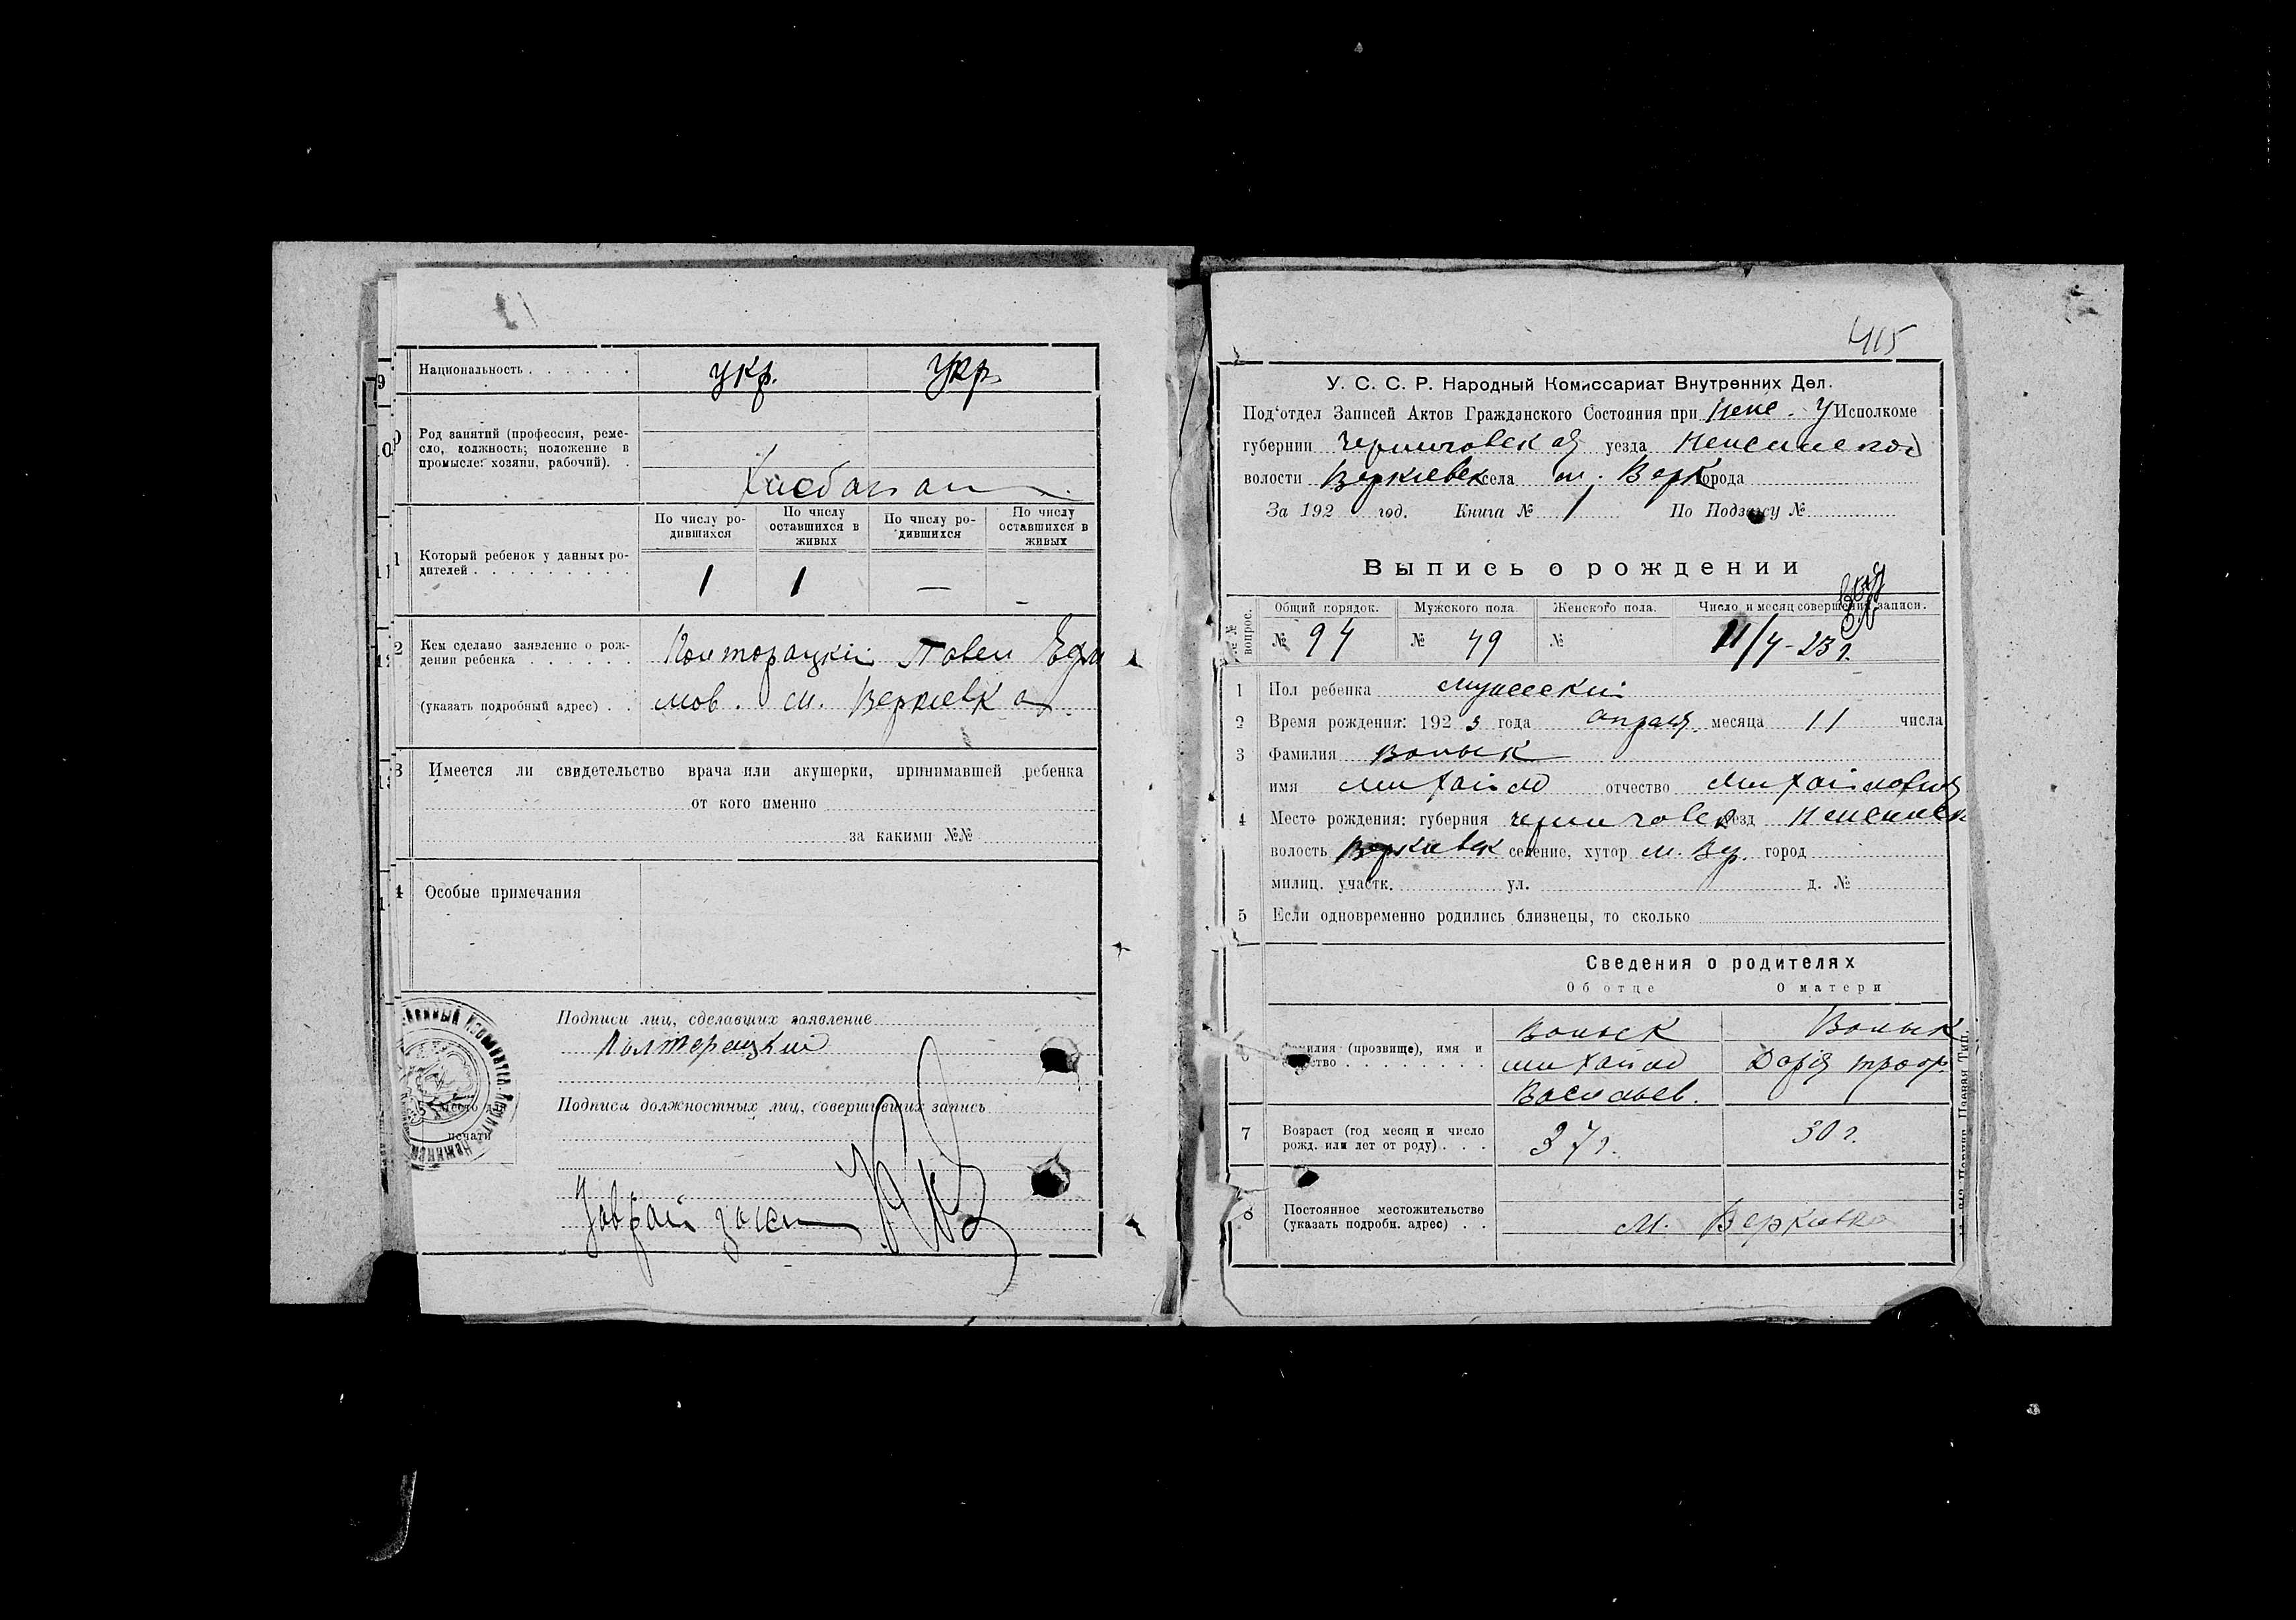 Национальность укр. Укр.
Род занятий (профессия, реме-
сло, должность; положение в
промысле: хозяин, рабочий).
Хлебопаш
Который ребенок у данных ро-
дителей
По числу ро-
дившихся
По числу
оставшихся в
живых
По числу ро-
дившихся
По числу
оставшихся в
живых
1 1 — -
Кем сделано заявление о рож-
дении ребенка Полторацкий Павел Ефи
(указать подробный адрес) мов. м. Веркиевка
Имеется ли свидетельство врача или акушерки, принимавшей ребенка
от кого именно
за какими №№
Особые примечания
Подписи лиц, сделавших заявление
Полторацкий
Подписи должностных лиц, совершивших запись
печати
415
У. С. С. Р. Народный Комиссариат Внутренних Дел.
Под‘отдел Записей Актов Гражданского Состояния при Неже. У Исполкоме
губернии Черниговская уезда Неженского
волости Веркиевск села м. Верк города
За 192 год. Книга № 1 По Подзагсу №
Выпись о рождении
№№ вопрос.
Общий порядок. Мужского пола. Женского пола. Число и месяц совершения записи.
№ 94 № 49 № 11/4-23 г.
1 Пол ребенка мужеский
2 Время рождения: 1923 года апреля месяца 11 числа
3 Фамилия Волык
имя Михайло отчество Михайлович
4 Место рождения: губерния Черниговск уезд Неженск
волость Веркиевск селение, хутор м. Вер. город
милиц. участк. ул. д. №
5 Если одновременно родились близнецы, то сколько
Сведения о родителях
Об отце О матери
6 Фамилия (прозвище), имя и
отчество
Волык
Михайло
Васильев.
Волык
Дарія Троф.
7 Возраст (год месяц и число
рожд. или лет от роду) 37 г. 30 г.
8 Постоянное местожительство
(указать подробн. адрес) м. Веркиевка